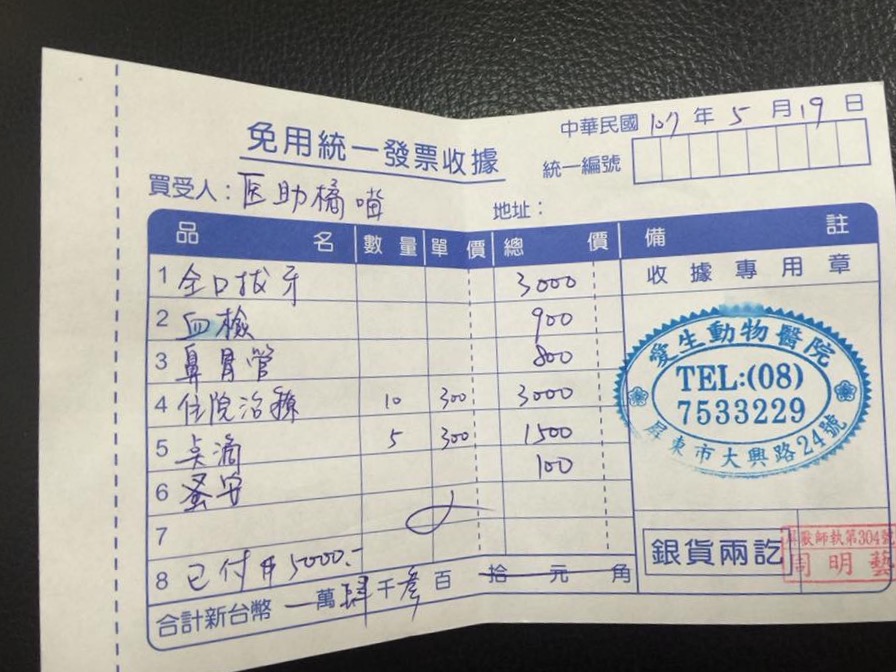 中華民國 107 年 5 月 19 日
免用統一發票收據
統一編號
買受人：医助橘喵
地址：
品名 數量 單價 總價 備註
收據專用章
1 全口拔牙 3000
2 血檢 900
3 鼻胃管 800
4 住院治療 10 300 3000
5 点滴 5 300 1500
6 蚤安 100
7
8 已付 5000.-
合計新台幣 萬肆千參百拾元角
愛生動物醫院
TEL:(08)
7533229
屏東市大興路24號
銀貨兩訖
師執第304號
明藝